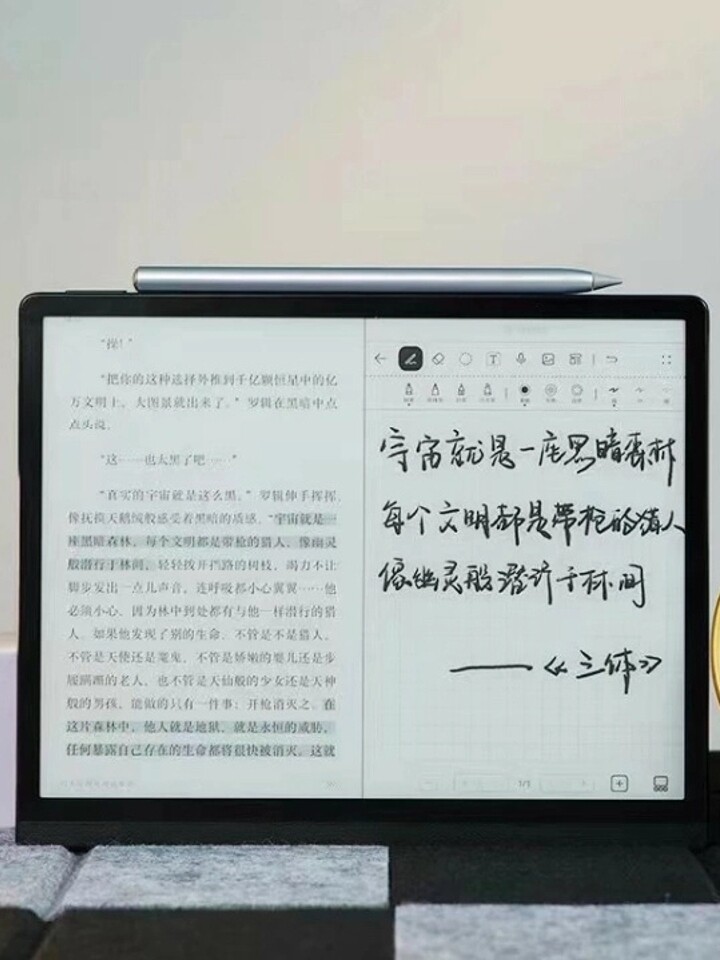 "操！"
"把你的这种选择外推到千亿颗恒星中的亿
万文明上，大图景就出来了。"罗辑在黑暗中点
点头说。
"这……也太黑了吧……"
"真实的宇宙就是这么黑。"罗辑伸手挥挥，
像抚摸天鹅绒般感受着黑暗的质感，"宇宙就是一
座黑暗森林，每个文明都是带枪的猎人，像幽灵
般潜行于林间，轻轻拨开挡路的树枝，竭力不让
脚步发出一点儿声音，连呼吸都小心翼翼……他
必须小心，因为林中到处都有与他一样潜行的猎
人。如果他发现了别的生命，不管是不是猎人，
不管是天使还是魔鬼，不管是娇嫩的婴儿还是步
履蹒跚的老人，也不管是天仙般的少女还是天神
般的男孩，能做的只有一件事：开枪消灭之。在
这片森林中，他人就是地狱，就是永恒的威胁，
任何暴露自己存在的生命都将很快被消灭。这就
T
宇宙就是一座黑暗森林
每个文明都是带枪的猎人
像幽灵般潜行于林间
——《三体》
1/1